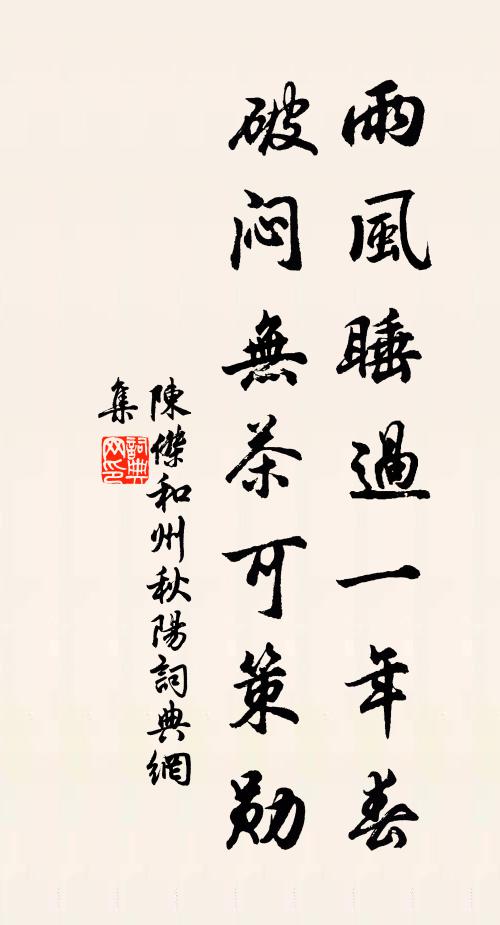 雨風睡過一年春
破闷無茶可策勋
陳傑和州秋陽詞典網
集
詞典网印